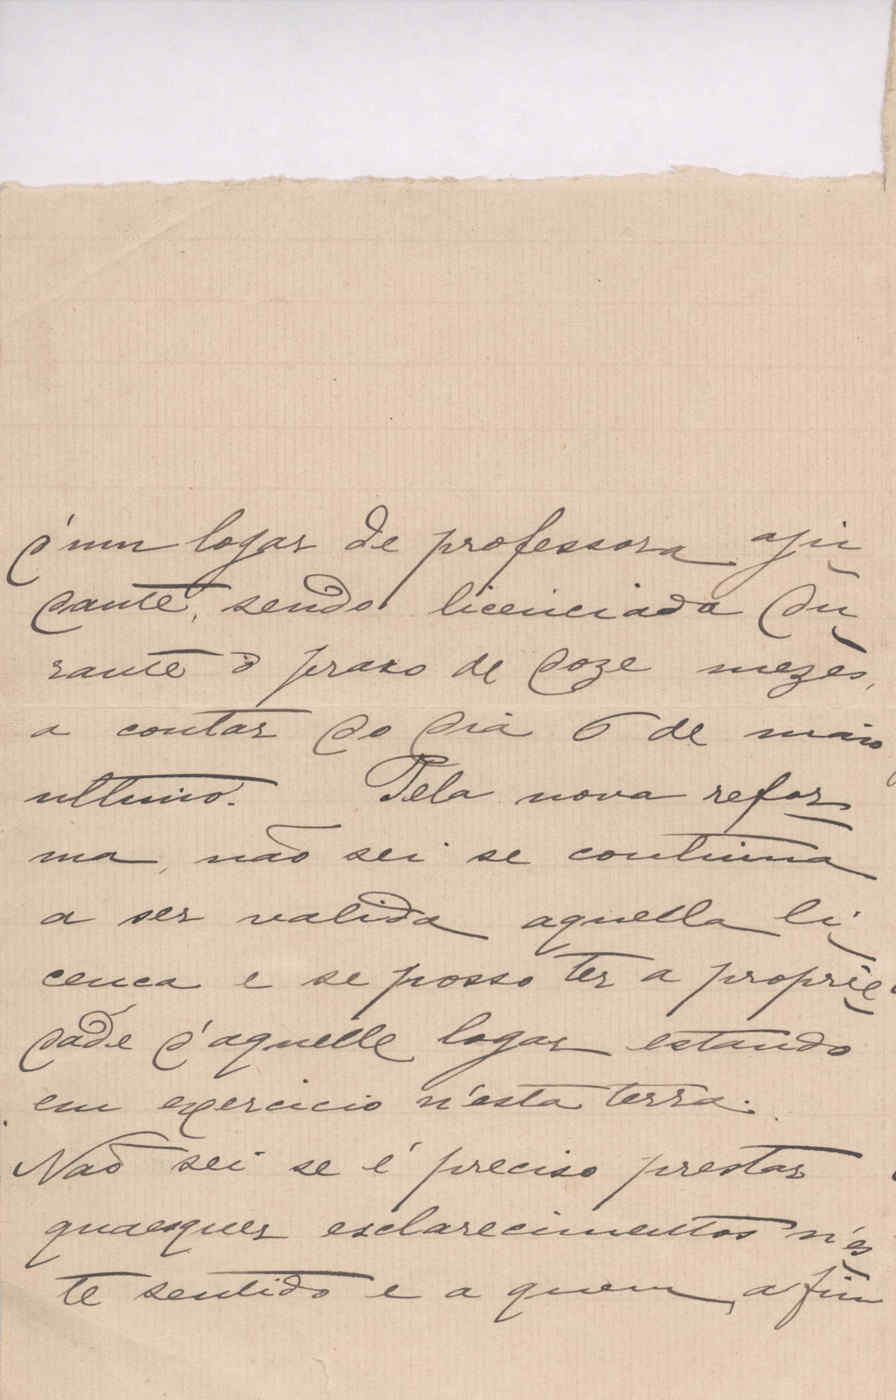 d'um logar de professora aju-
dante, sendo licenciada du-
rante o prazo de doze mezes,
a contar do dia 6 de maio
ultimo. Pela nova refor-
ma, não sei se continua
a ser valida aquella li-
cença e se posso ter a proprie-
dade d'aquelle logar estando
em exercicio n'esta terra.
Não sei se é preciso prestar
quaesquer esclarecimentos n'es-
te sentido e a quem, a fim